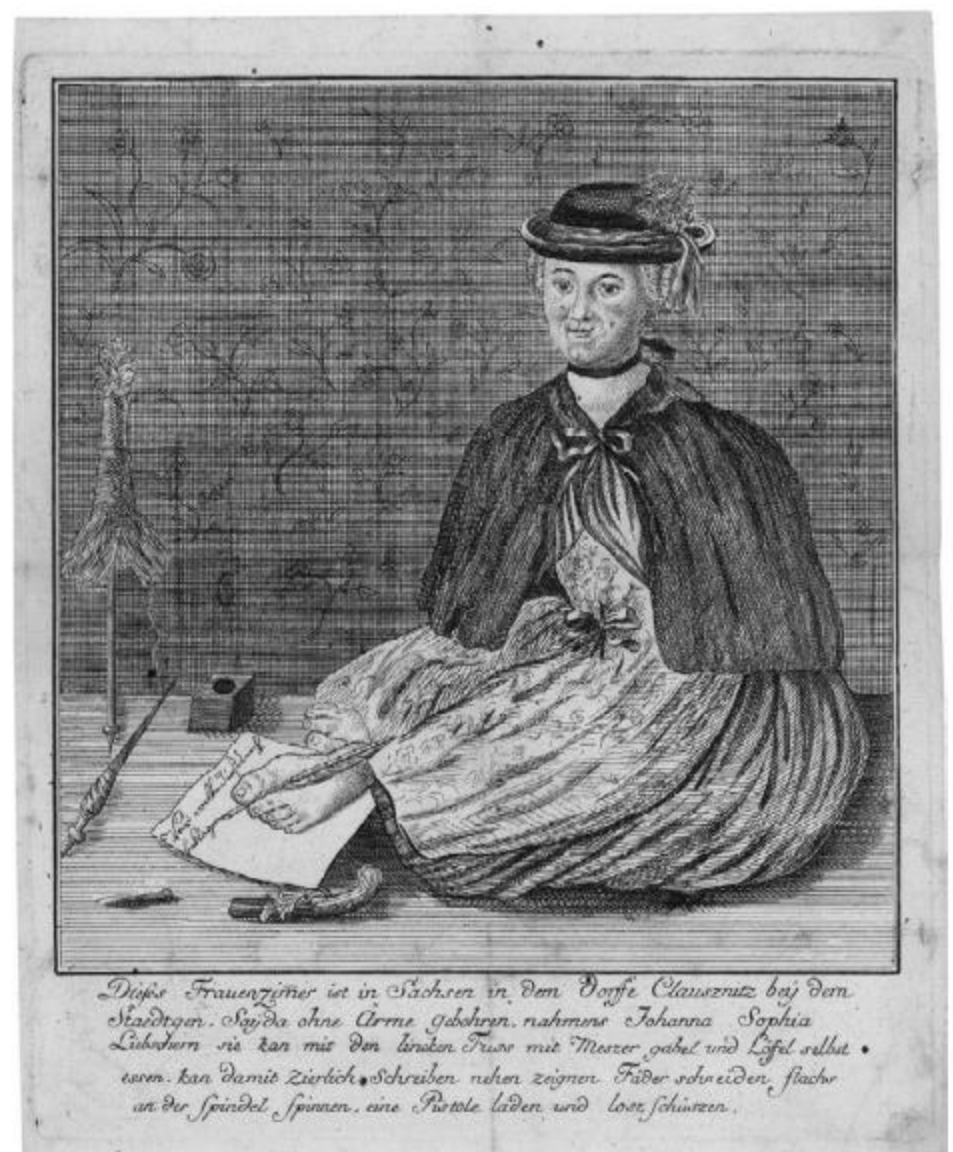 Dieses Frauenzimer ist in Sachsen in dem Dorffe Clausznitz beÿ dem
Staedtgen. Saÿda ohne Arme gebohren. nahmens Johanna Sophia
Liebschern sie kan mit den lincken Fuss mit Meszer gabel und Löfel selbst
essen. kan damit Zierlich Schreiben nehen zeignen Fäder schneiden flachs
an der Spindel Spinnen. eine Pistole laden und losz schüszen.